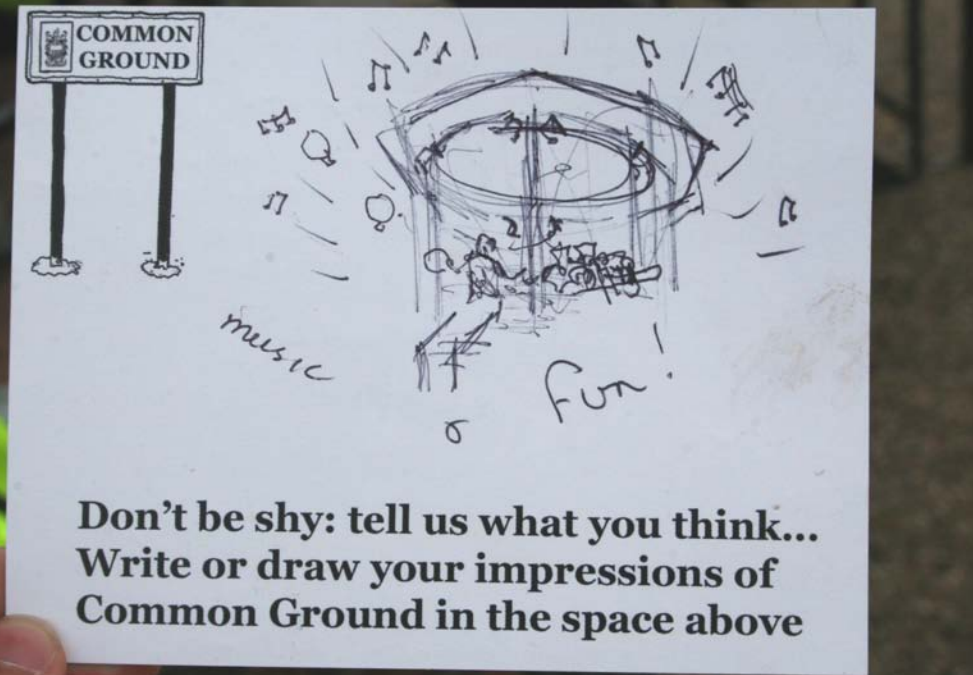 COMMON
GROUND
music
Fun!
Don't be shy: tell us what you think...
Write or draw your impressions of
Common Ground in the space above